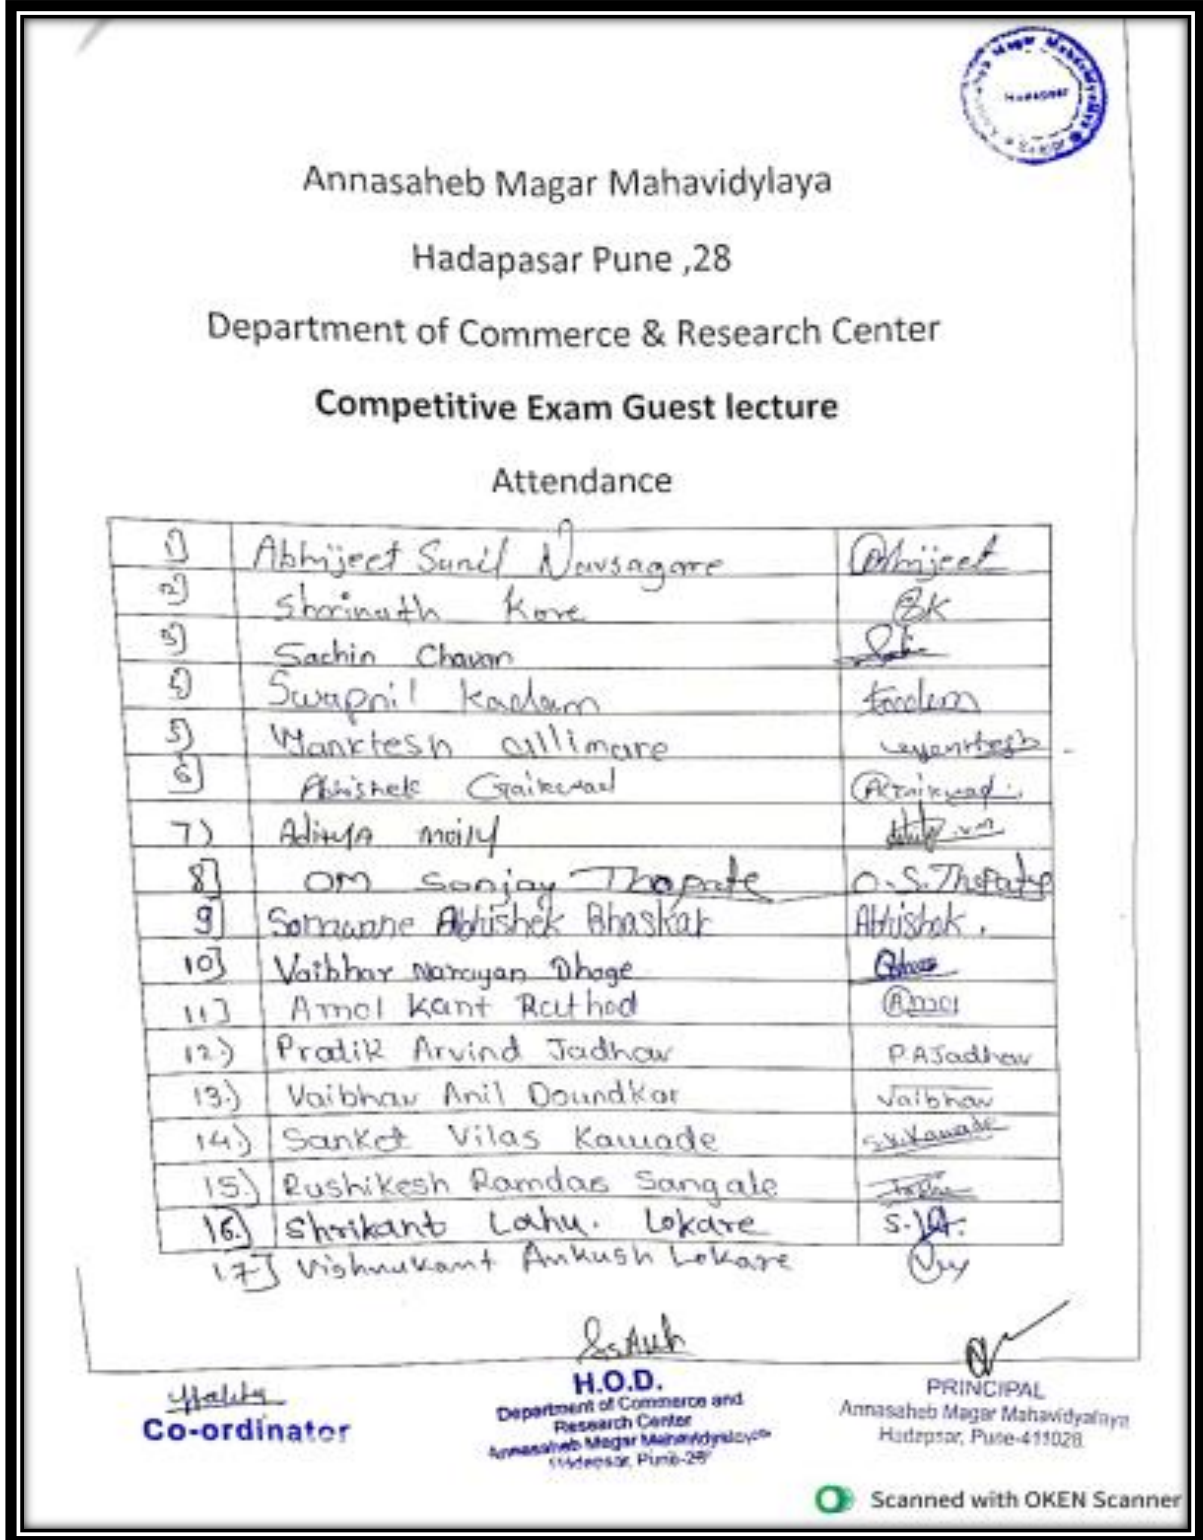 Magar Mahavidyalaya
Hadapsar
Annasaheb Magar Mahavidylaya
Hadapasar Pune ,28
Department of Commerce & Research Center
Competitive Exam Guest lecture
Attendance
1) Abhijeet Sunil Navsagare Abhijeet
2) Shrinath Kore SK
3) Sachin Chavan
4) Swapnil Kadam Kadam
5) allimare
6] Abhishek Gaikwad AGaikwad.
7) Aditya moily
8] OM Sanjay Thopate O.S.Thopate
9] Sonawane Abhishek Bhaskar Abhishek.
10] Vaibhav Narayan Dhage
11] Amol Kant Rathod Amol
12.) Pratik Arvind Jadhav P.A.Jadhav
13.) Vaibhav Anil Doundkar Vaibhav
14.) Sanket Vilas Kawade S.V.Kawade
15.) Rushikesh Ramdas Sangale
16.) Shrikant Lahu. Lokare
17] Vishnukant Ankush Lokare
Co-ordinator
H.O.D.
Department of Commerce and
Research Center
Annasaheb Magar Mahavidyalaya
Hadapsar, Pune-28
PRINCIPAL
Annasaheb Magar Mahavidyalaya
Hadapsar, Pune-411028.
Scanned with OKEN Scanner